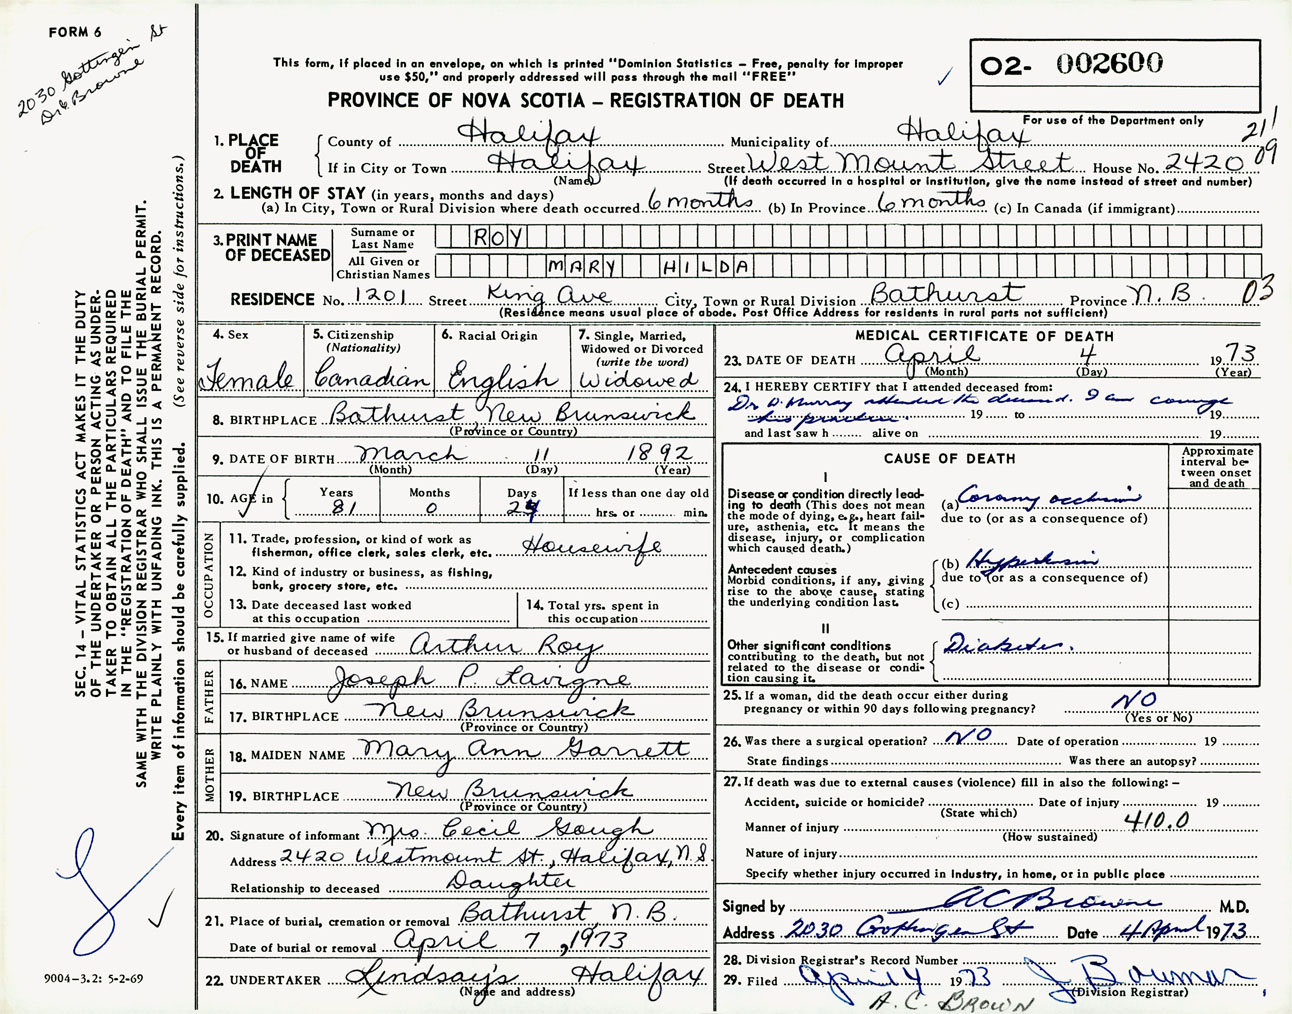 FORM 6
2030 Gottingen St
Dr. Browne
This form, if placed in an envelope, on which is printed "Dominion Statistics – Free, penalty for improper
use $50," and properly addressed will pass through the mail "FREE"
PROVINCE OF NOVA SCOTIA – REGISTRATION OF DEATH
02- 002600
For use of the Department only
211
09
1. PLACE OF DEATH
County of Halifax Municipality of Halifax
If in City or Town Halifax Street West Mount Street House No. 2420
(Name) (If death occurred in a hospital or institution, give the name instead of street and number)
2. LENGTH OF STAY (in years, months and days)
(a) In City, Town or Rural Division where death occurred 6 months (b) In Province 6 months (c) In Canada (if immigrant)
3. PRINT NAME OF DECEASED
Surname or Last Name ROY
All Given or Christian Names MARY HILDA
RESIDENCE No. 1201 Street King Ave City, Town or Rural Division Bathurst Province N.B. 03
(Residence means usual place of abode. Post Office Address for residents in rural parts not sufficient)
4. Sex
Female
5. Citizenship
(Nationality)
Canadian
6. Racial Origin
English
7. Single, Married,
Widowed or Divorced
(write the word)
Widowed
8. BIRTHPLACE Bathurst, New Brunswick
(Province or Country)
9. DATE OF BIRTH March 11 1892
(Month) (Day) (Year)
10. AGE in
Years 81
Months 0
Days 24
If less than one day old
hrs. or min.
OCCUPATION
11. Trade, profession, or kind of work as
fisherman, office clerk, sales clerk, etc. Housewife
12. Kind of industry or business, as fishing,
bank, grocery store, etc.
13. Date deceased last worked
at this occupation
14. Total yrs. spent in
this occupation
15. If married give name of wife
or husband of deceased Arthur Roy
FATHER
16. NAME Joseph P. Lavigne
17. BIRTHPLACE New Brunswick
(Province or Country)
MOTHER
18. MAIDEN NAME Mary Ann Garrett
19. BIRTHPLACE New Brunswick
(Province or Country)
20. Signature of informant Mrs. Cecil Gough
Address 2420 Westmount St., Halifax, N.S.
Relationship to deceased Daughter
21. Place of burial, cremation or removal Bathurst, N.B.
Date of burial or removal April 7, 1973
22. UNDERTAKER Lindsay's Halifax
(Name and address)
MEDICAL CERTIFICATE OF DEATH
23. DATE OF DEATH April 4 1973
(Month) (Day) (Year)
24. I HEREBY CERTIFY that I attended deceased from:
Dr D. Murray attended the deceased. I am
19 to 19
his practice.
and last saw h alive on 19
CAUSE OF DEATH
Approximate
interval be-
tween onset
and death
I
Disease or condition directly lead-
ing to death (This does not mean
the mode of dying, e.g., heart fail-
ure, asthenia, etc. It means the
disease, injury, or complication
which caused death.)
(a) Coronary occlusion
due to (or as a consequence of)
Antecedent causes
Morbid conditions, if any, giving
rise to the above cause, stating
the underlying condition last.
(b) Hypertension
due to (or as a consequence of)
(c)
II
Other significant conditions
contributing to the death, but not
related to the disease or condi-
tion causing it.
Diabetes.
25. If a woman, did the death occur either during
pregnancy or within 90 days following pregnancy? NO
(Yes or No)
26. Was there a surgical operation? NO Date of operation 19
State findings Was there an autopsy?
27. If death was due to external causes (violence) fill in also the following: –
Accident, suicide or homicide? Date of injury 19
(State which)
Manner of injury 410.0
(How sustained)
Nature of injury
Specify whether injury occurred in industry, in home, or in public place
Signed by AC Browne M.D.
Address 2030 Gottingen St Date 4 April 1973
28. Division Registrar's Record Number
29. Filed April 4 1973 J Bowmar
(Division Registrar)
A. C. BROWN
SEC. 14 – VITAL STATISTICS ACT MAKES IT THE DUTY
OF THE UNDERTAKER OR PERSON ACTING AS UNDER-
TAKER TO OBTAIN ALL THE PARTICULARS REQUIRED
IN THE "REGISTRATION OF DEATH" AND TO FILE THE
SAME WITH THE DIVISION REGISTRAR WHO SHALL ISSUE THE BURIAL PERMIT.
WRITE PLAINLY WITH UNFADING INK. THIS IS A PERMANENT RECORD.
Every item of information should be carefully supplied. (See reverse side for instructions.)
9004–3.2: 5-2-69